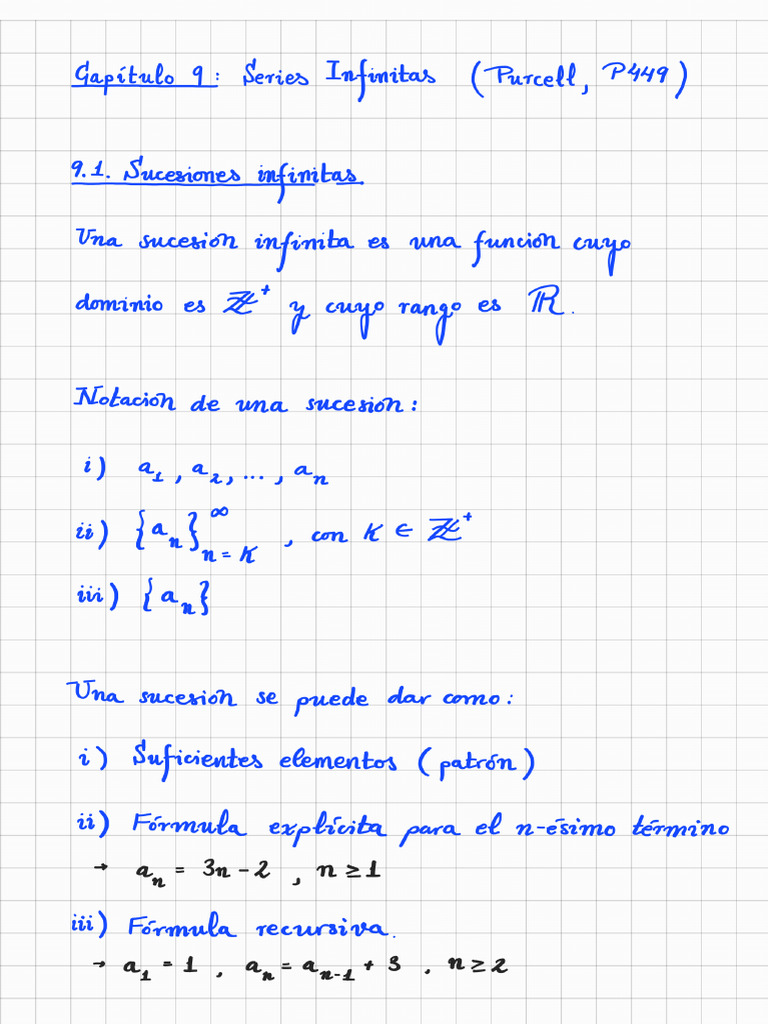 Capítulo 9: Series Infinitas (Purcell, P449)
9.1. Sucesiones infinitas.
Una sucesión infinita es una función cuyo
dominio es ℤ⁺ y cuyo rango es ℝ.
Notación de una sucesión:
i) a₁, a₂, ..., aₙ
ii) {aₙ}_{n=K}^{∞}, con K ∈ ℤ⁺
iii) {aₙ}
Una sucesión se puede dar como:
i) Suficientes elementos (patrón)
ii) Fórmula explícita para el n-ésimo término
→ aₙ = 3n - 2, n ≥ 1
iii) Fórmula recursiva.
→ a₁ = 1, aₙ = aₙ₋₁ + 3, n ≥ 2